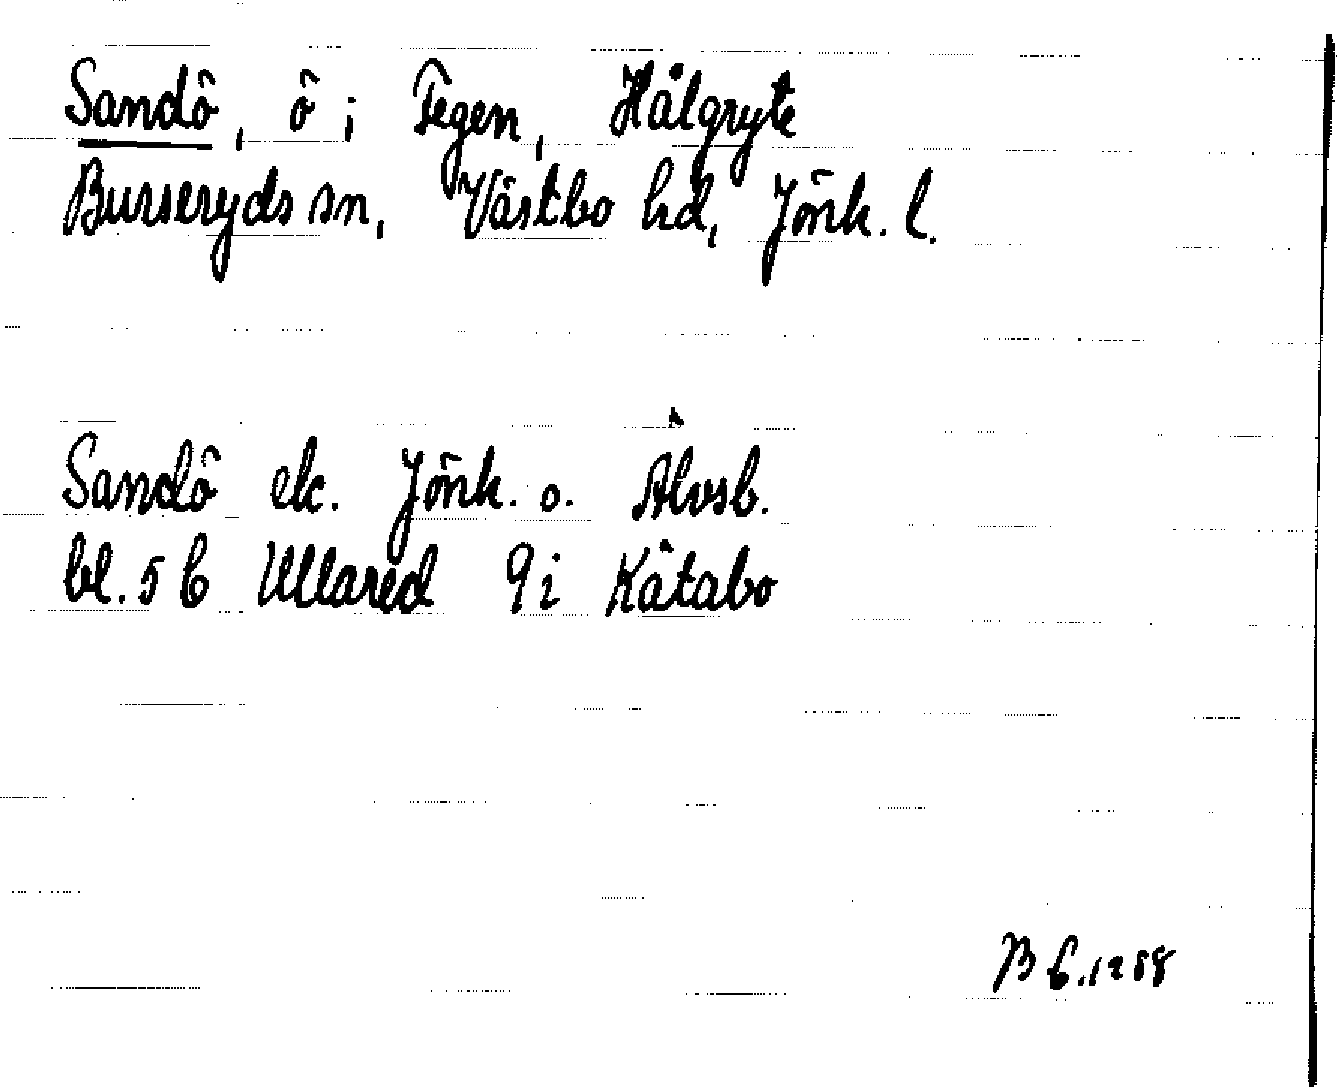 Sandö, ö i Fegen, Hålgryte
Burseryds sn, Västbo hd, Jönk. l.
Sandö ek. Jönk. o. Älvsb.
bl. 5 b Ullared 9 i Kåtabo
B 6.12 58